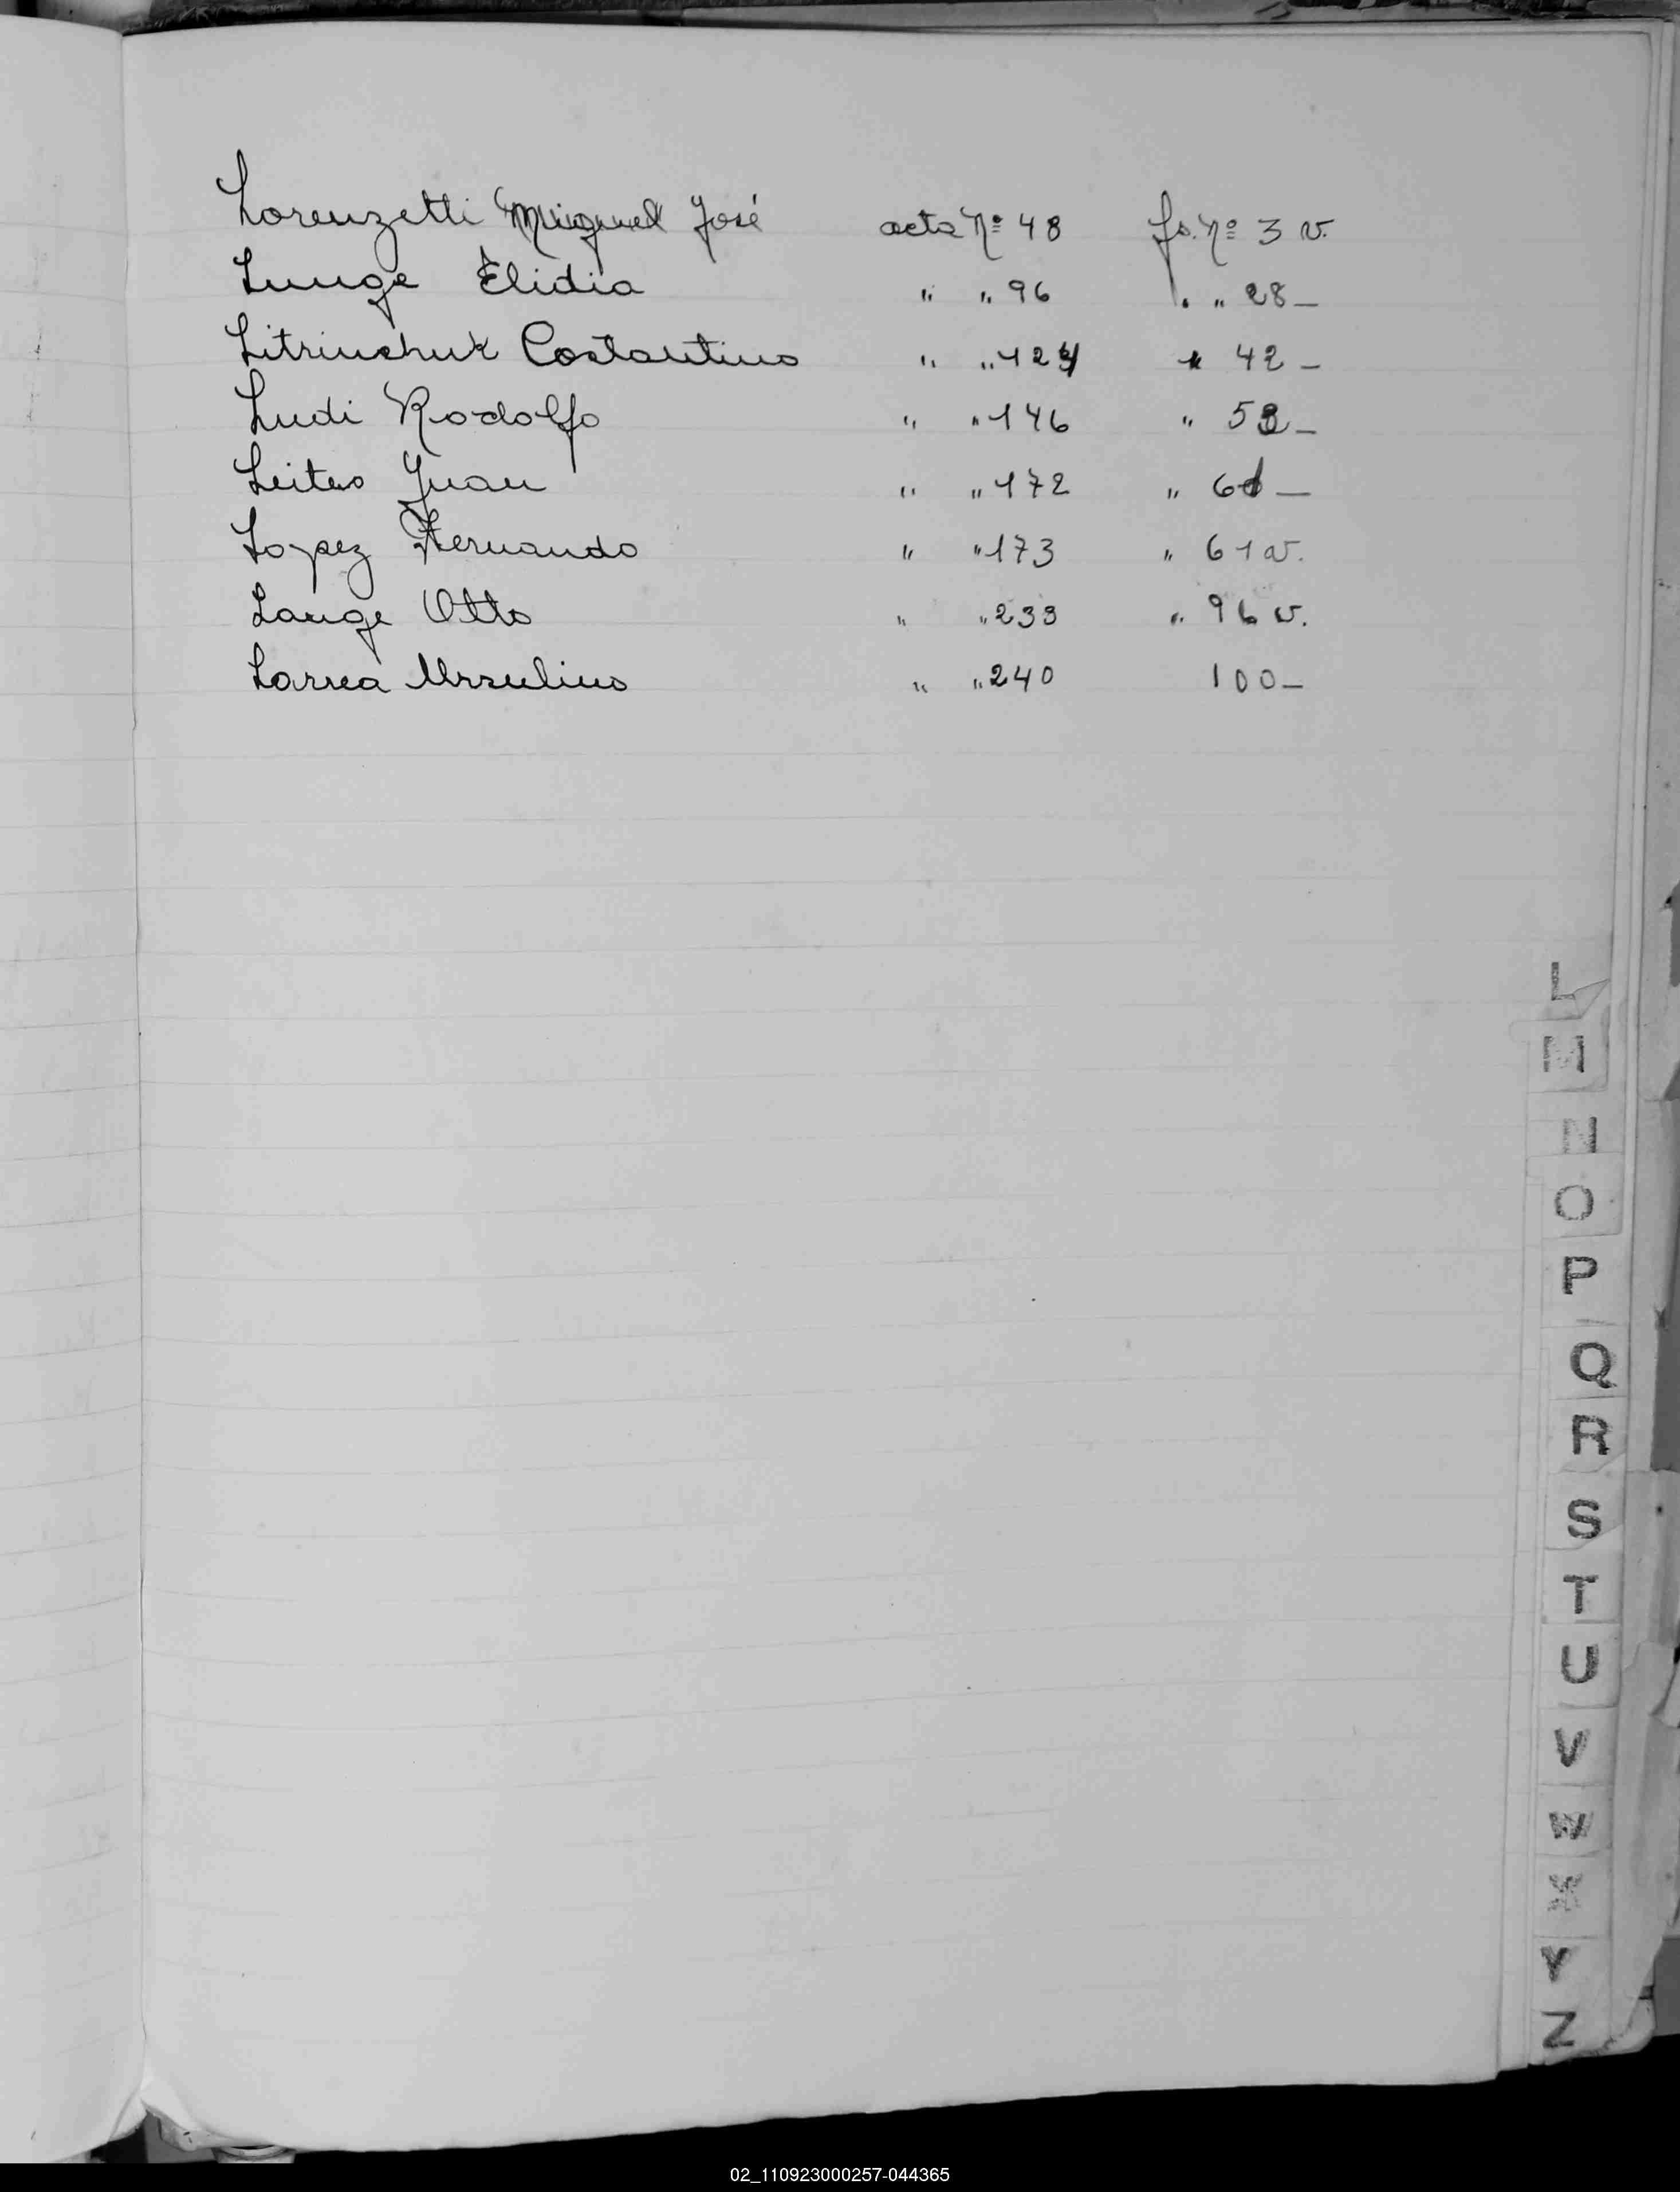 Lorenzetti Miguel José acta Nº 48 fs. Nº 3 v.
Lunge Elidia " " 96 " " 28 –
Litrinchuk Costantino " " 124 " 42 –
Ludi Rodolfo " " 146 " 52 –
Leites Juan " " 172 " 61 –
Lopez Hernando " " 173 " 61 v.
Lange Otto " " 233 " 96 v.
Larrea Ursulino " " 240 100 –
L
M
N
O
P
Q
R
S
T
U
V
W
X
Y
Z
02_110923000257-044365